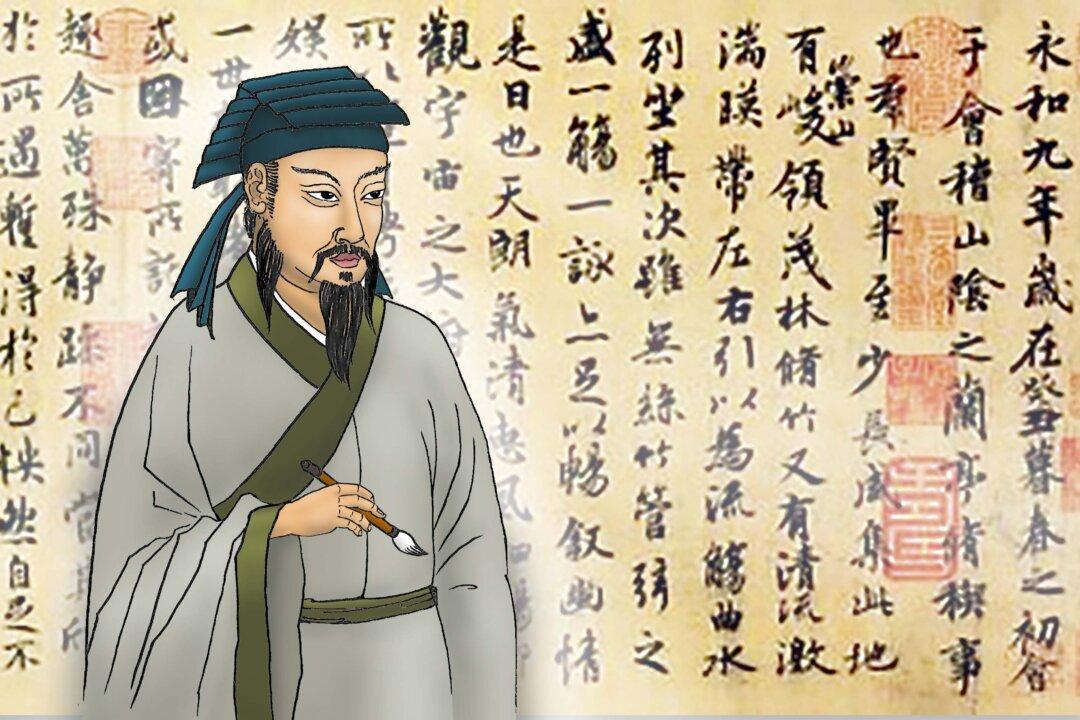 永和九年歲在癸丑暮春之初會
于會稽山陰之蘭亭脩稧事
也群賢畢至少長咸集此地
有崇山峻領茂林脩竹又有清流激
湍暎帶左右引以為流觴曲水
列坐其次雖無絲竹管弦之
盛一觴一詠亦足以暢敘幽情
是日也天朗氣清惠風和暢仰
觀宇宙之大俯
所以
娛
一世
或因寄所託
趣舍萬殊靜躁不同當其欣
於所遇暫得於己怏然自足不